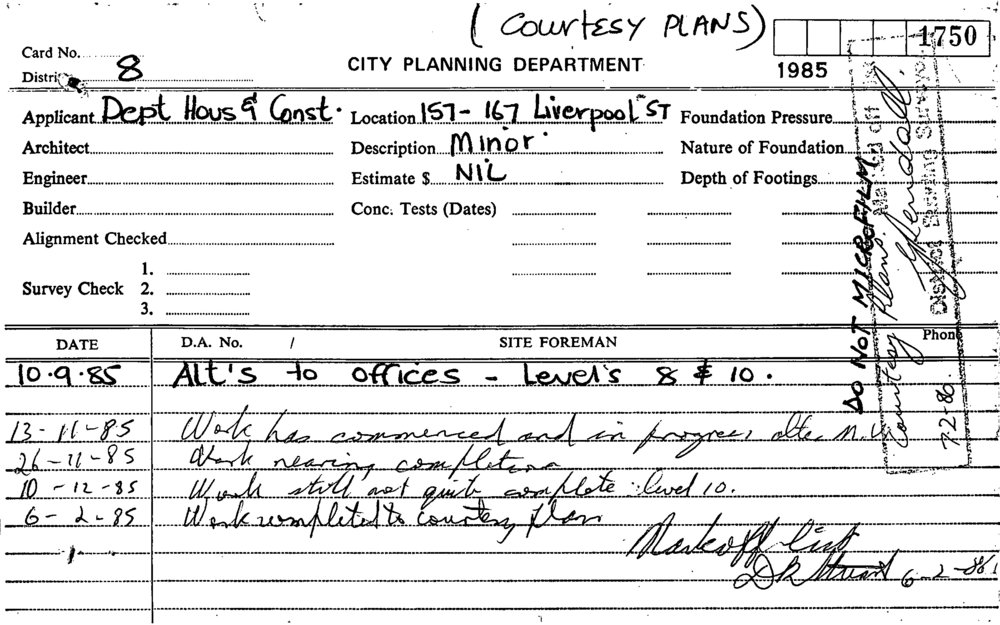 (COURTESY PLANS)
1750
Card No.
1985
District 8
CITY PLANNING DEPARTMENT
Applicant Dept Hous & Const. Location 157-167 Liverpool ST Foundation Pressure
Architect Description Minor Nature of Foundation
Engineer Estimate $ NIL Depth of Footings
Builder Conc. Tests (Dates)
Alignment Checked
1.
Survey Check 2.
3.
DO NOT MICROFILM
Marked Off
Courtesy Plans.
District Building Surveyor
7-2-86.
DATE D.A. No. / SITE FOREMAN Phone
10.9.85 Alt's to offices - Level's 8 & 10.
13-11-85 Work has commenced and in progress
26-11-85 Work nearing completion
10-12-85 Work still not quite complete level 10.
6-2-85 Work completed to courtesy plan
Markoff list
6-2-86